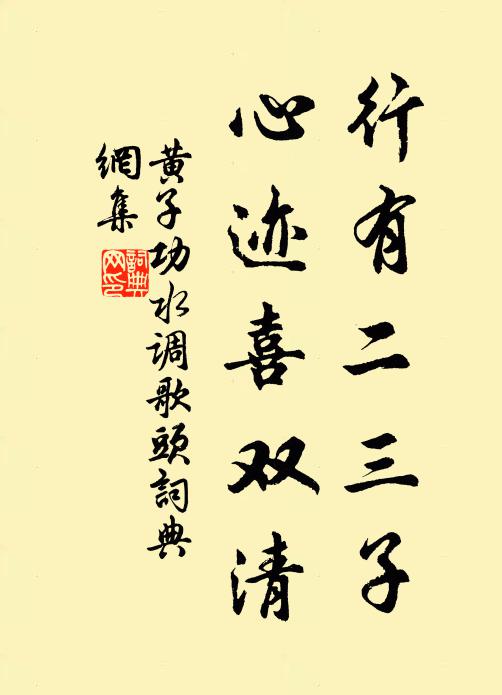 行有二三子
心迹喜双清
黄子功水调歌頭詞典
網集
詞典
网印